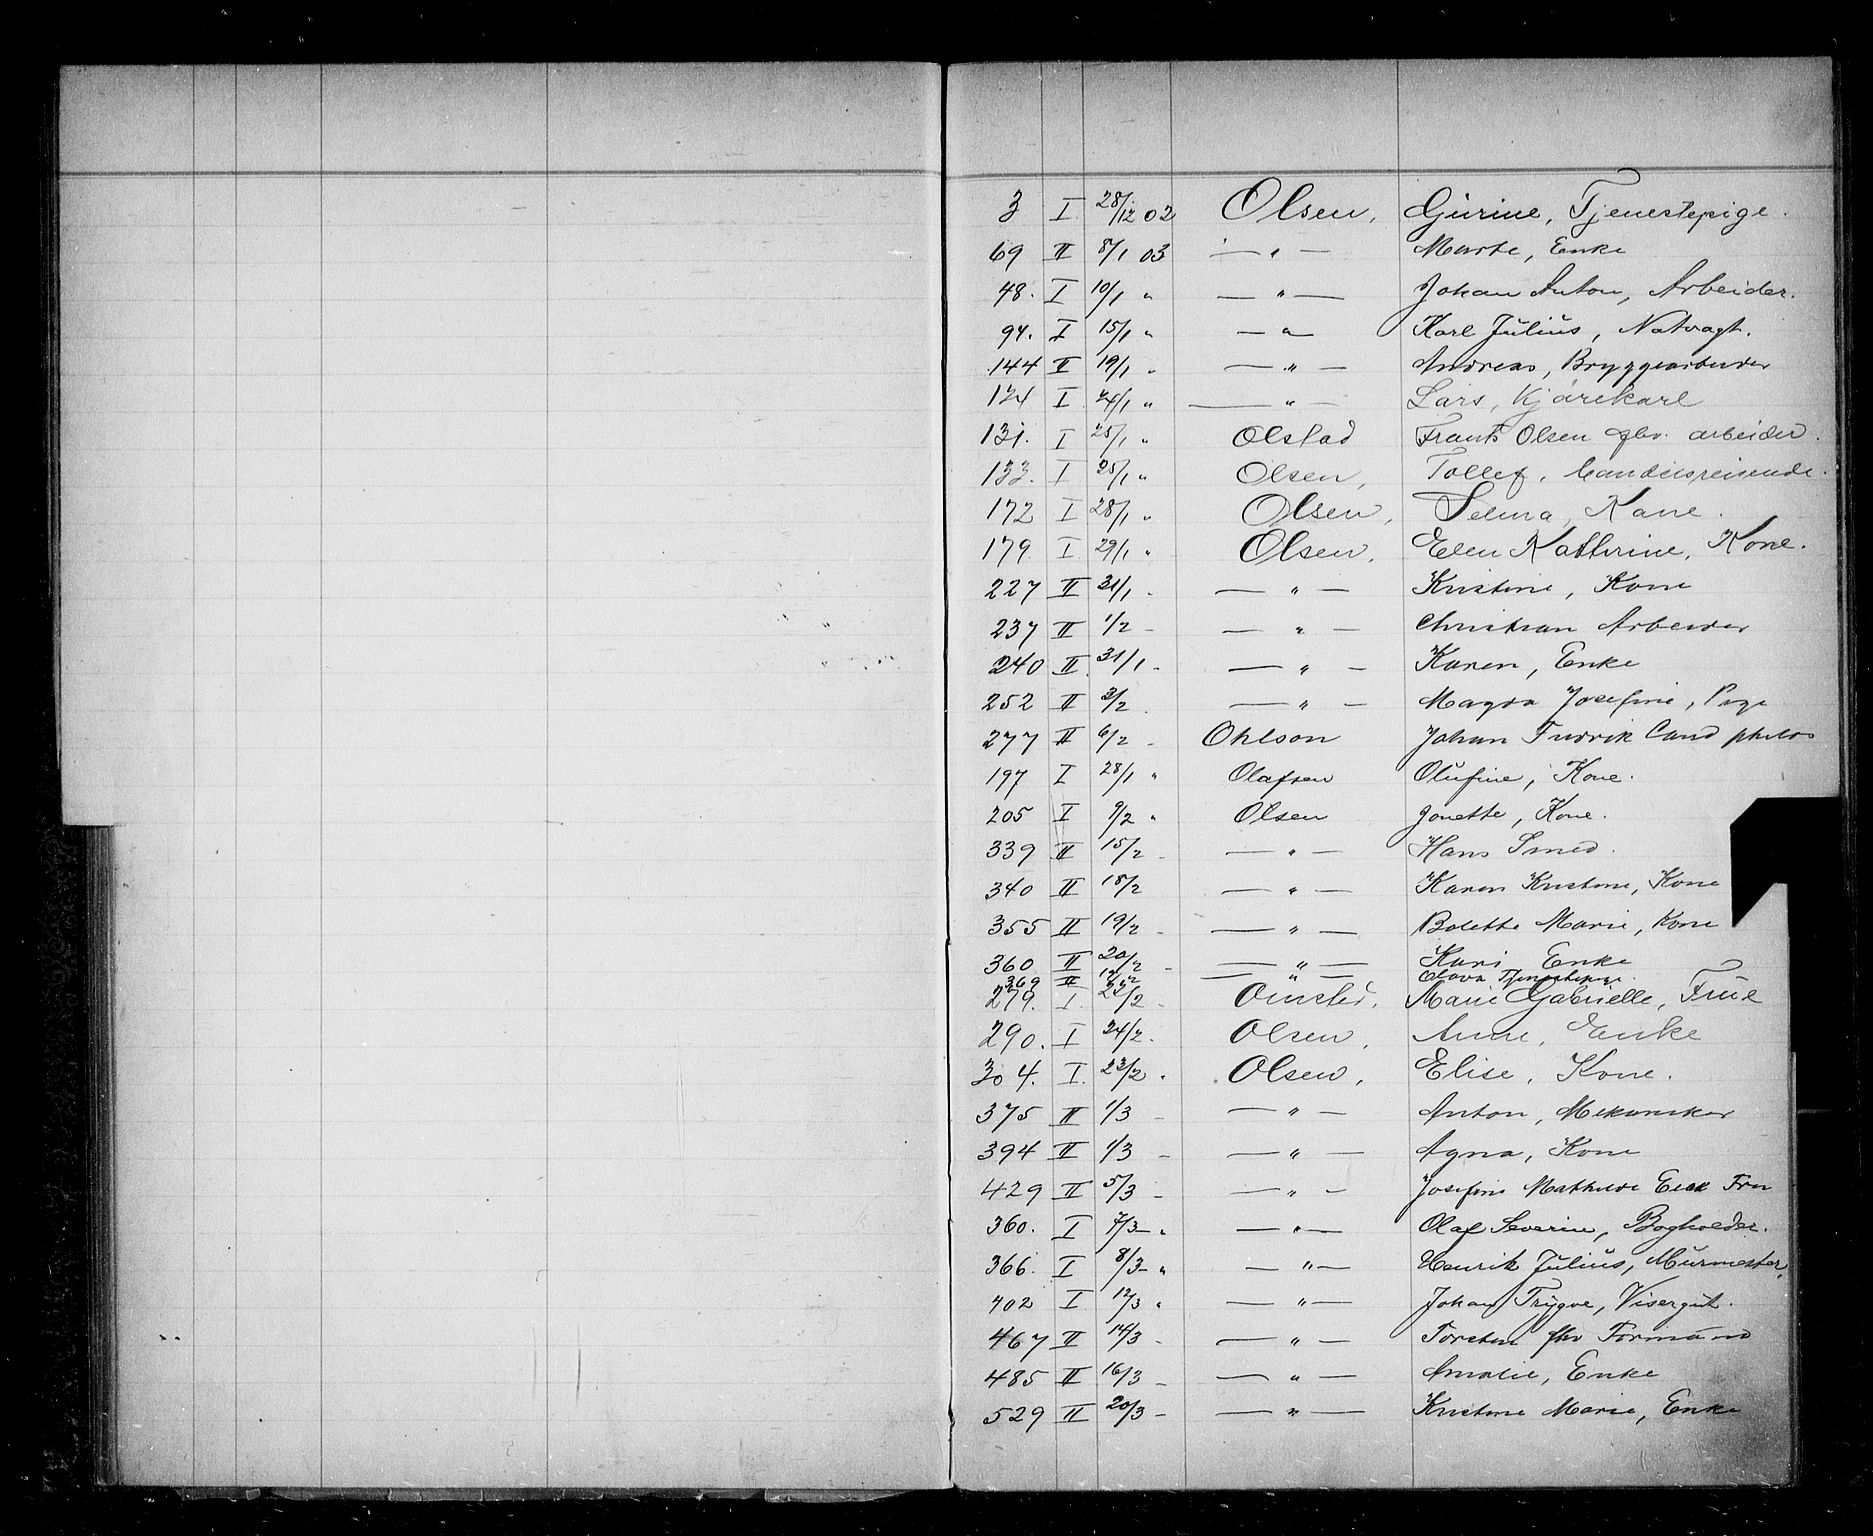 3 I 28/12 02 Olsen, Gurine, Tjenestepige.
69 II 8/1 03 — " — Marte, Enke
48. I 10/1 " — " — Johan Anton, Arbeider.
94. I 15/1 " — " — Karl Julius, Natvagt.
144 II 19/1 " — " — Andreas, Bryggearbeider
124 I 24/1 " — " — Lars, Kjørekarl
131. I 25/1 " Olstad Frants Olsen fhv. arbeider.
133. I 25/1 " Olsen, Tollef, Handelsreisende.
172 I 28/1 " Olsen, Selma, Kone.
179 I 29/1 " Olsen, Elen Kathrine, Kone.
227 II 31/1 - — " — Kristine, Kone
237 II 1/2 - — " — Christian Arbeider
240 II 31/1 - — " — Karen, Enke
252 II 3/2 - — " — Magda Josefine, Pige
277 II 6/2 - Ohlson Johan Fredrik Cand philos
197 I 28/1 " Olafsen Olufine, Kone.
205 I 9/2 " Olsen Jonette, Kone.
339 II 15/2 - — " — Hans Smed.
340 II 18/2 — " — Karen Kristine, Kone
355 II 19/2 - — " — Bolette Marie, Kone
360 II 20/2 - — " — Kari Enke
369 II — " — Olava Tjenestepige.
279. I 22/2 - Omsted, Marie Gabrielle, Frue
290. I 24/2. Olsen, Anne, Enke
304. I. 23/2 " Olsen, Elise, Kone.
375 II 1/3 - — " — Anton, Mekaniker
394 II 1/3 - — " — Agna, Kone
429 II 5/3 - — " — Josefine Mathilde Eeck Fru
360. I 7/3 - " — " — Olaf Severin, Bogholder.
366. I 8/3 - " — " — Henrik Julius, Murmester,
402 I 12/3 " — " — Johan Trygve, Visergut.
467 II 14/3 - — " — Torsten fhv Formand
485 II 16/3 - — " — Amalie, Enke
529 II 20/3 - — " — Kristine Marie, Enke